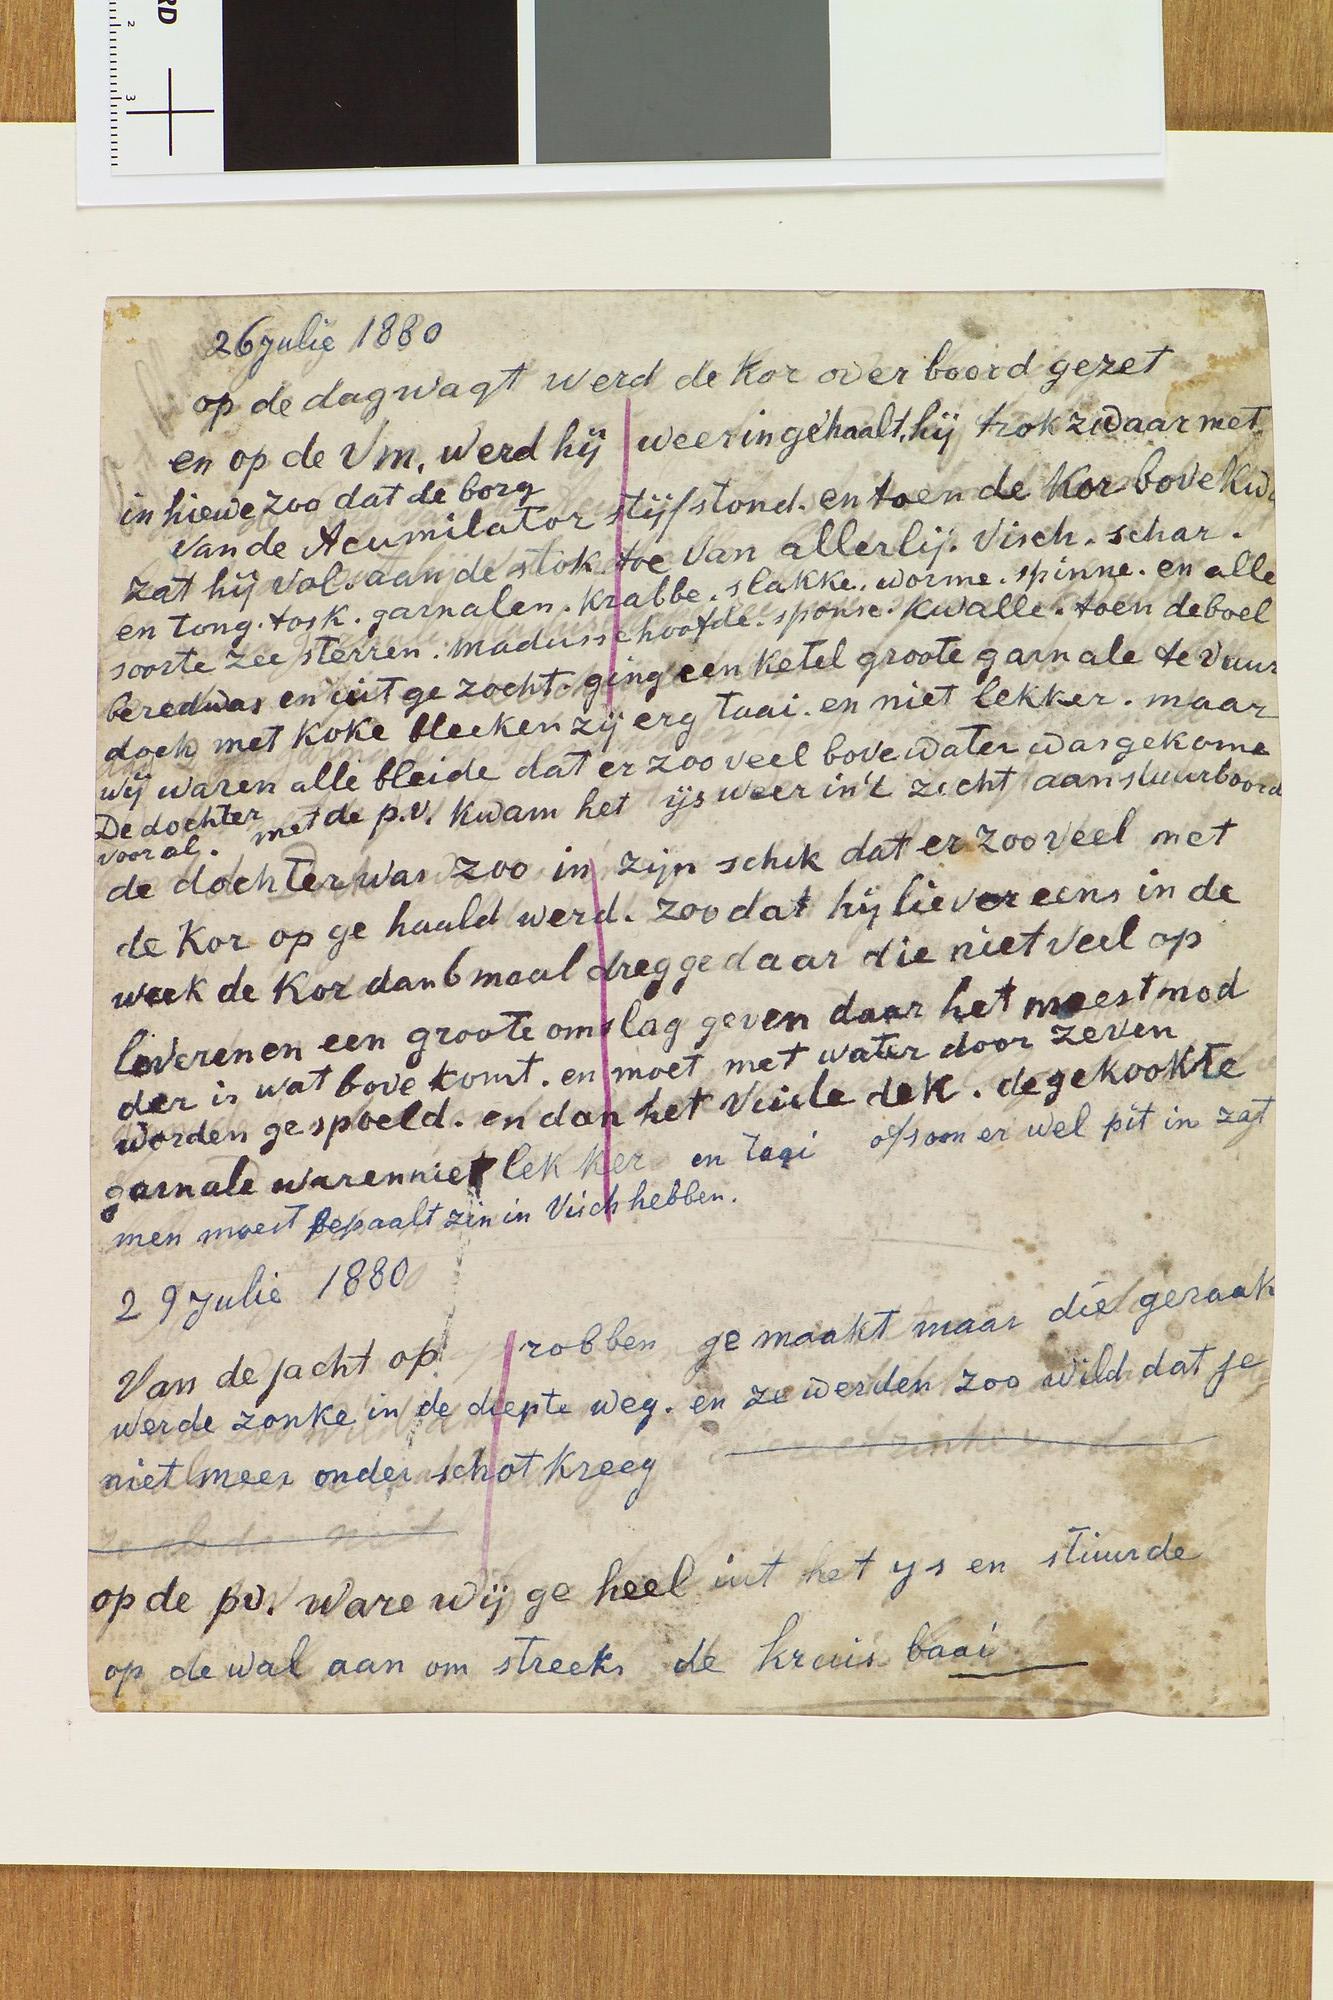 RD
2
3
26 julie 1880
op de dagwagt werd de Kor over boord gezet
en op de Vm. werd hij weer ingehaalt, hij trok zwaar met
in hiewe zoo dat de borg
van de Acumilator stijf stond. en toen de Kor bove kw
zat hij vol. aan de stok toe van allerlij. Visch. schar.
en tong. tosk. garnalen. krabbe. slakke. worme. spinne. en alle
soorte zee sterren. madusschoofde. sponse. kwalle. toen de boel
beredwas en uit ge zocht. ging een ketel groote garnale te vuur
doch met koke bleeken zij erg taai. en niet lekker. maar
wij waren alle bleide dat er zoo veel bove water was gekome
De dochter met de p.v. kwam het ijs weer in't zicht aan stuurboord
vooral.
de dochter was zoo in zijn schik dat er zoo veel met
de Kor op ge haald werd. zoo dat hij liever eens in de
week de Kor dan 6 maal dregge daar die niet veel op
leverenen een groote omslag geven daar het meest mod
der is wat bove komt. en moet met water door zeven
worden gespoeld. en dan het vuile dek. de gekookte
garnale waren niet lekker en taai ofsoon er wel pit in zat
men moest bepaalt zin in Visch hebben.
29 Julie 1880
Van de jacht op robben ge maakt maar die geraak
werde zonke in de diepte weg. en ze werden zoo wild dat je
niet meer onder schot kreeg
op de pv. ware wij ge heel uit het ys en stuurde
op de wal aan om streeks de kruis baai